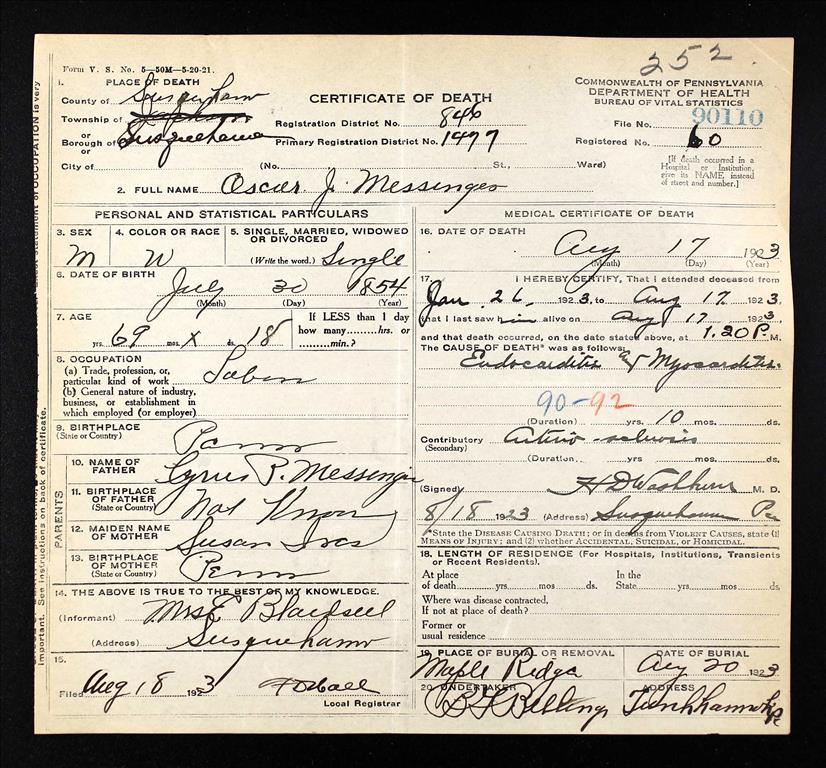 252.
Form V. S. No. 5—50M—5-20-21.
1. PLACE OF DEATH
County of
Township of
or
Borough of Susquehanna
City of (No. St., Ward)
CERTIFICATE OF DEATH
Registration District No. 846
Primary Registration District No. 1497
COMMONWEALTH OF PENNSYLVANIA
DEPARTMENT OF HEALTH
BUREAU OF VITAL STATISTICS
File No. 90110
Registered No. 60
[If death occurred in a Hospital or Institution, give its NAME instead of street and number.]
2. FULL NAME Oscar J. Messenger
PERSONAL AND STATISTICAL PARTICULARS
3. SEX M
4. COLOR OR RACE W
5. SINGLE, MARRIED, WIDOWED OR DIVORCED
(Write the word.) Single
6. DATE OF BIRTH
July 30 1854
(Month) (Day) (Year)
7. AGE
69 yrs. x mos. 18 ds.
If LESS than 1 day how many hrs. or min.?
8. OCCUPATION
(a) Trade, profession, or particular kind of work
(b) General nature of industry, business, or establishment in which employed (or employer)
9. BIRTHPLACE
(State or Country)
PARENTS
10. NAME OF FATHER Cyrus P. Messenger
11. BIRTHPLACE OF FATHER
(State or Country) Not Known
12. MAIDEN NAME OF MOTHER Susan
13. BIRTHPLACE OF MOTHER
(State or Country) Penn
14. THE ABOVE IS TRUE TO THE BEST OF MY KNOWLEDGE.
(Informant) Mrs E
(Address)
15.
Filed Aug 18 1923
Local Registrar
MEDICAL CERTIFICATE OF DEATH
16. DATE OF DEATH
Aug 17 1923
(Month) (Day) (Year)
17. I HEREBY CERTIFY, That I attended deceased from
Jan. 26, 1923, to Aug 17, 1923,
that I last saw him alive on Aug 17 1923,
and that death occurred, on the date stated above, at 1.20 P. M.
The CAUSE OF DEATH* was as follows:
Endocarditis & Myocarditis.
90-92
(Duration) yrs. 10 mos. ds.
Contributory
(Secondary)
(Duration) yrs. mos. ds.
(Signed) H D Washburn M. D.
8/18 1923 (Address) Susquehanna Pa
*State the DISEASE CAUSING DEATH; or in deaths from VIOLENT CAUSES, state (1) MEANS OF INJURY; and (2) whether ACCIDENTAL, SUICIDAL, or HOMICIDAL.
18. LENGTH OF RESIDENCE (For Hospitals, Institutions, Transients or Recent Residents).
At place of death yrs. mos. ds.
In the State yrs. mos. ds.
Where was disease contracted,
If not at place of death?
Former or usual residence
19. PLACE OF BURIAL OR REMOVAL
Maple Ridge
DATE OF BURIAL
Aug 20 1923
20. UNDERTAKER
Billings
ADDRESS
Important. See instructions on back of certificate.
statement of OCCUPATION is very